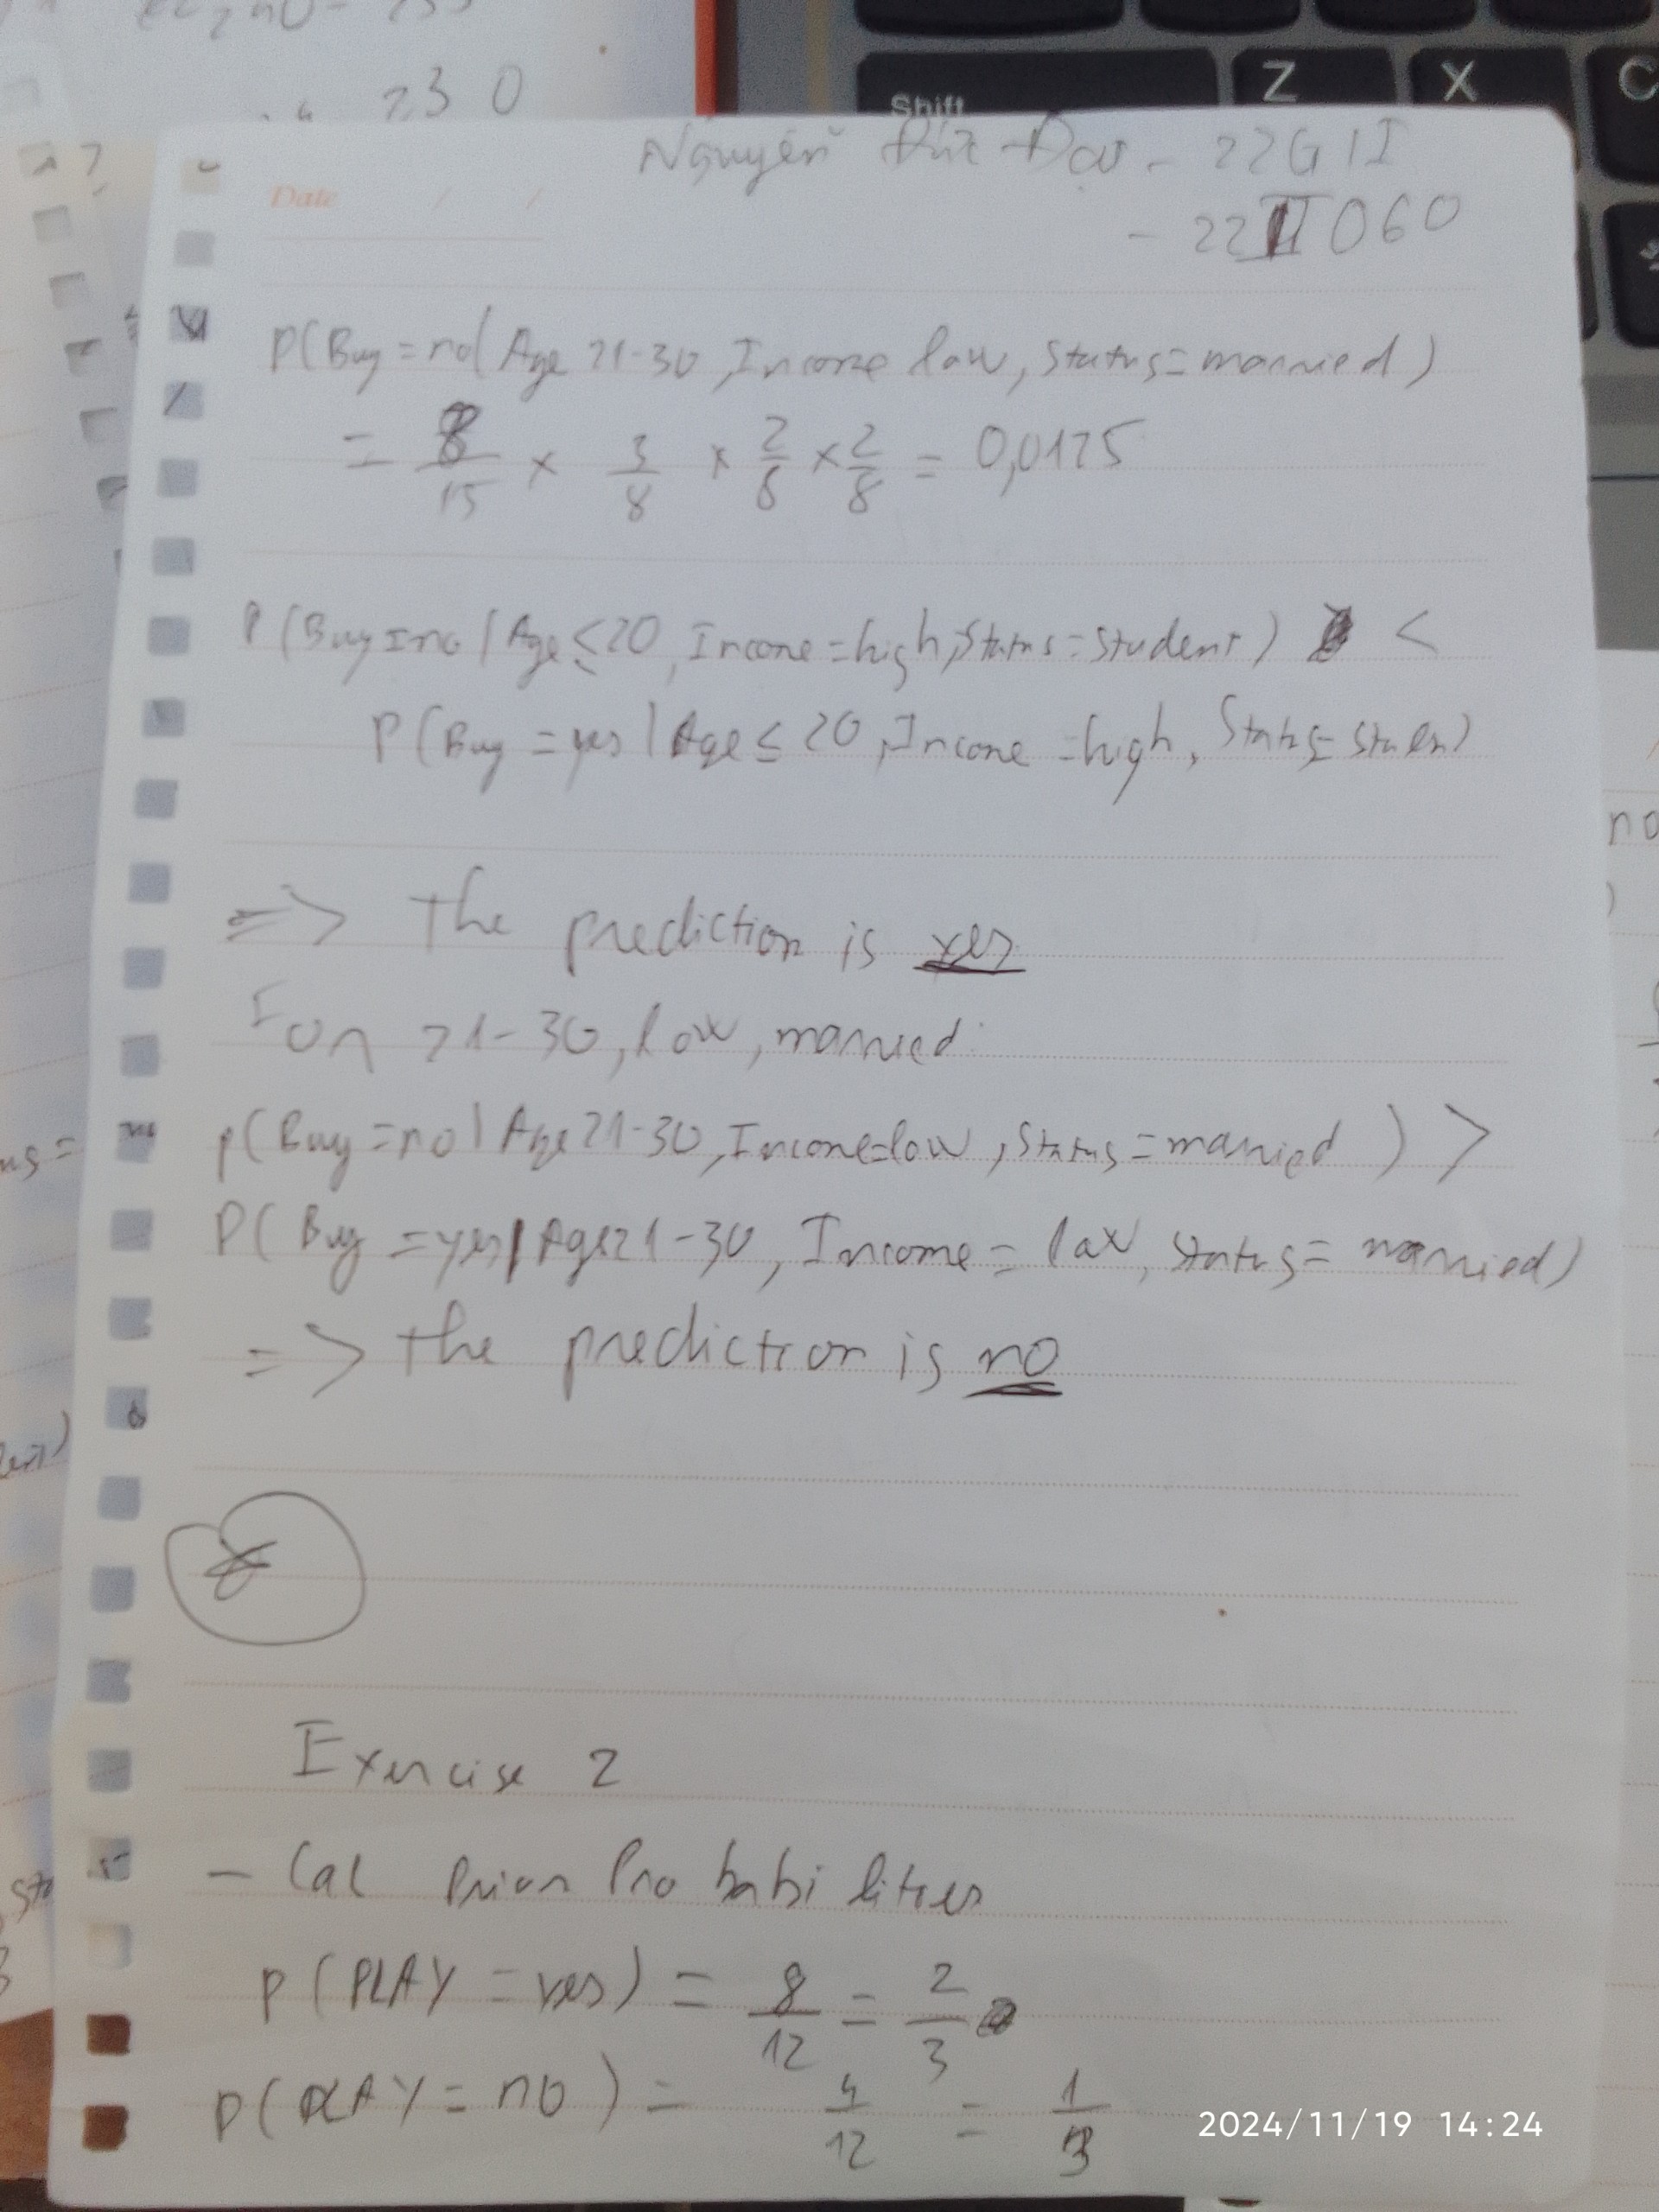 230
Shift
Z
X
C
Nguyễn Đức Đạt - 22GIT
- 22IT060
Date / /
P(Buy = no | Age 21-30, Income low, Status = married)
= 8/15 × 3/8 × 2/8 × 2/8 = 0,0125
P(Buy = no | Age ≤ 20, Income = high, Status = student) <
P(Buy = yes | Age ≤ 20, Income = high, Status = studen)
=> The prediction is yes
For 21-30, low, married:
P(Buy = no | Age 21-30, Income = low, Status = married) >
P(Buy = yes | Age 21-30, Income = low, Status = married)
=> The prediction is no
Exercise 2
- Cal Prior Probabilities
P(PLAY = yes) = 8/12 = 2/3
P(PLAY = no) = 4/12 = 1/3
2024/11/19 14:24